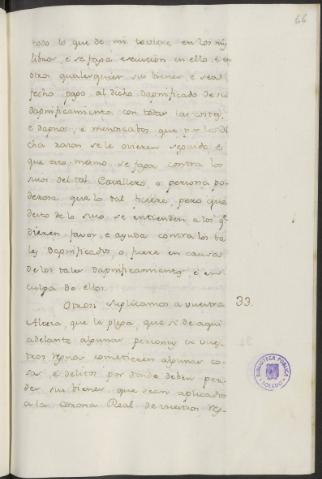 66
todo lo que de mi toviere en los mis
libros, e se faga execucion en ello, e en
otros qualesquier sus bienes, e sea
fecho pago al dicho dapnificado de su
dapnificamiento, con todas las costas,
e dapnos, e menoscabos, que por la di-
cha razon se le ovieren seguido, e
que eso mesmo se faga contra los
suos del tal Cavallero, o persona po-
derosa que lo tal ficiere, pero que
desto de lo suso, se entienden a los que
dieren favor, e ayuda contra los ta-
les dapnificados, o fuere en causa
de los tales dapnificamientos, e en
culpa de ellos.
Otrosi suplicamos a vuestra 33.
Alteza, que le plega, que si de aqui
adelante algunas personas en vues-
tros regnos cometieren algunas co-
sas, e delitos por donde deben per-
der sus bienes, que sean aplicados
a la Corona Real de vuestros reg-
BIBLIOTECA PUBLICA
TOLEDO